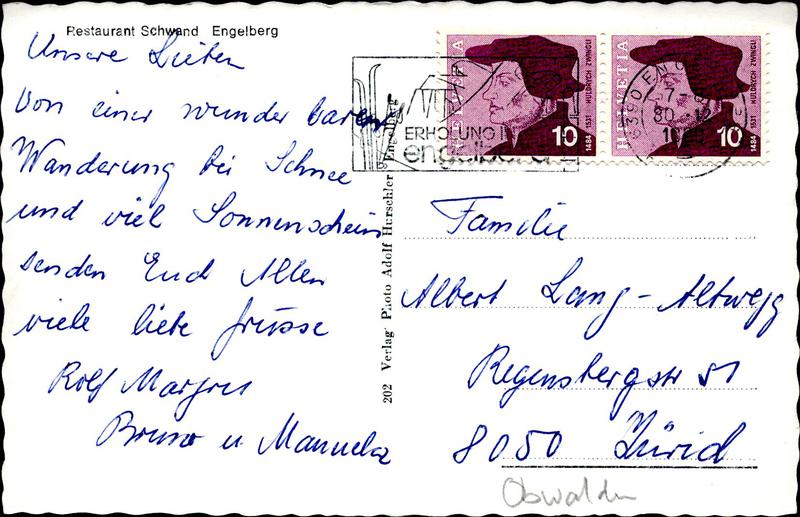 Restaurant Schwand Engelberg
Unsere Lieben
Von einer wunderbaren
Wanderung bei Schnee
und viel Sonnenschein
senden Euch Allen
viele liebe Grüsse
Rolf Margrit
Bruno u Manuela
202 Verlag Photo Adolf Hurschler Engelberg
ERHOLUNG IN
engelberg
HELVETIA
10
1484 1531 HULDRYCH ZWINGLI
HELVETIA
10
1484 1531 HULDRYCH ZWINGLI
6390 ENGELBERG
Familie
Albert Lang-Altwegg
Regensbergstr 51
8050 Zürich
Obwalden